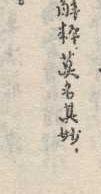 解粹.莫名其妙.